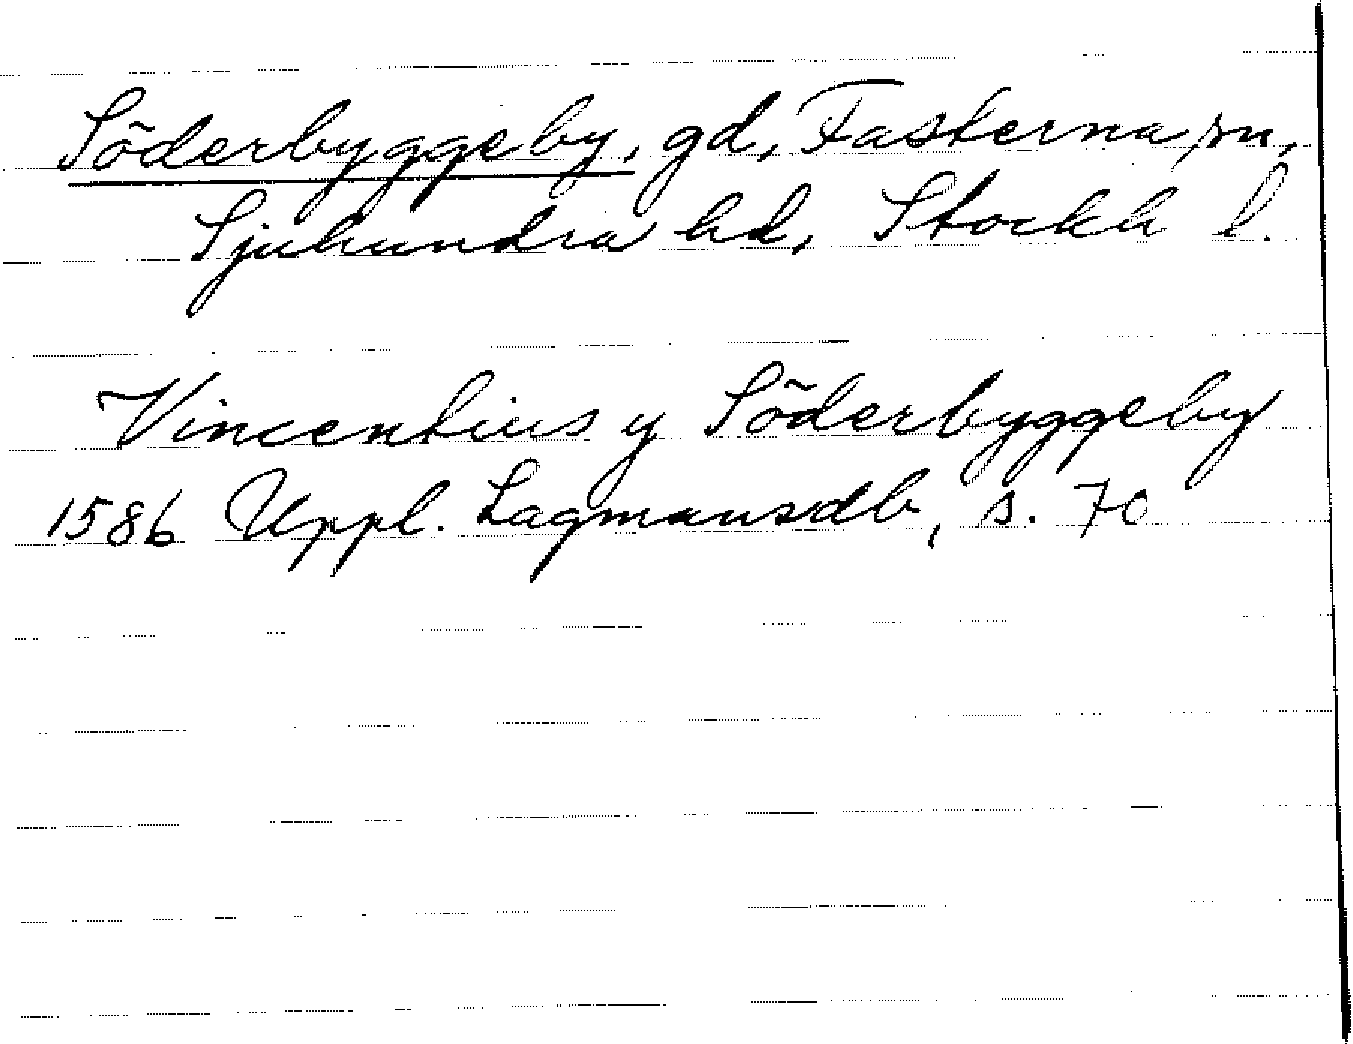 Söderbyggeby, gd, Fasterna sn,
Sjuhundra hd, Stockh l.
Vincentius y Söderbyggeby
1586 Uppl. Lagmansdb, s. 70